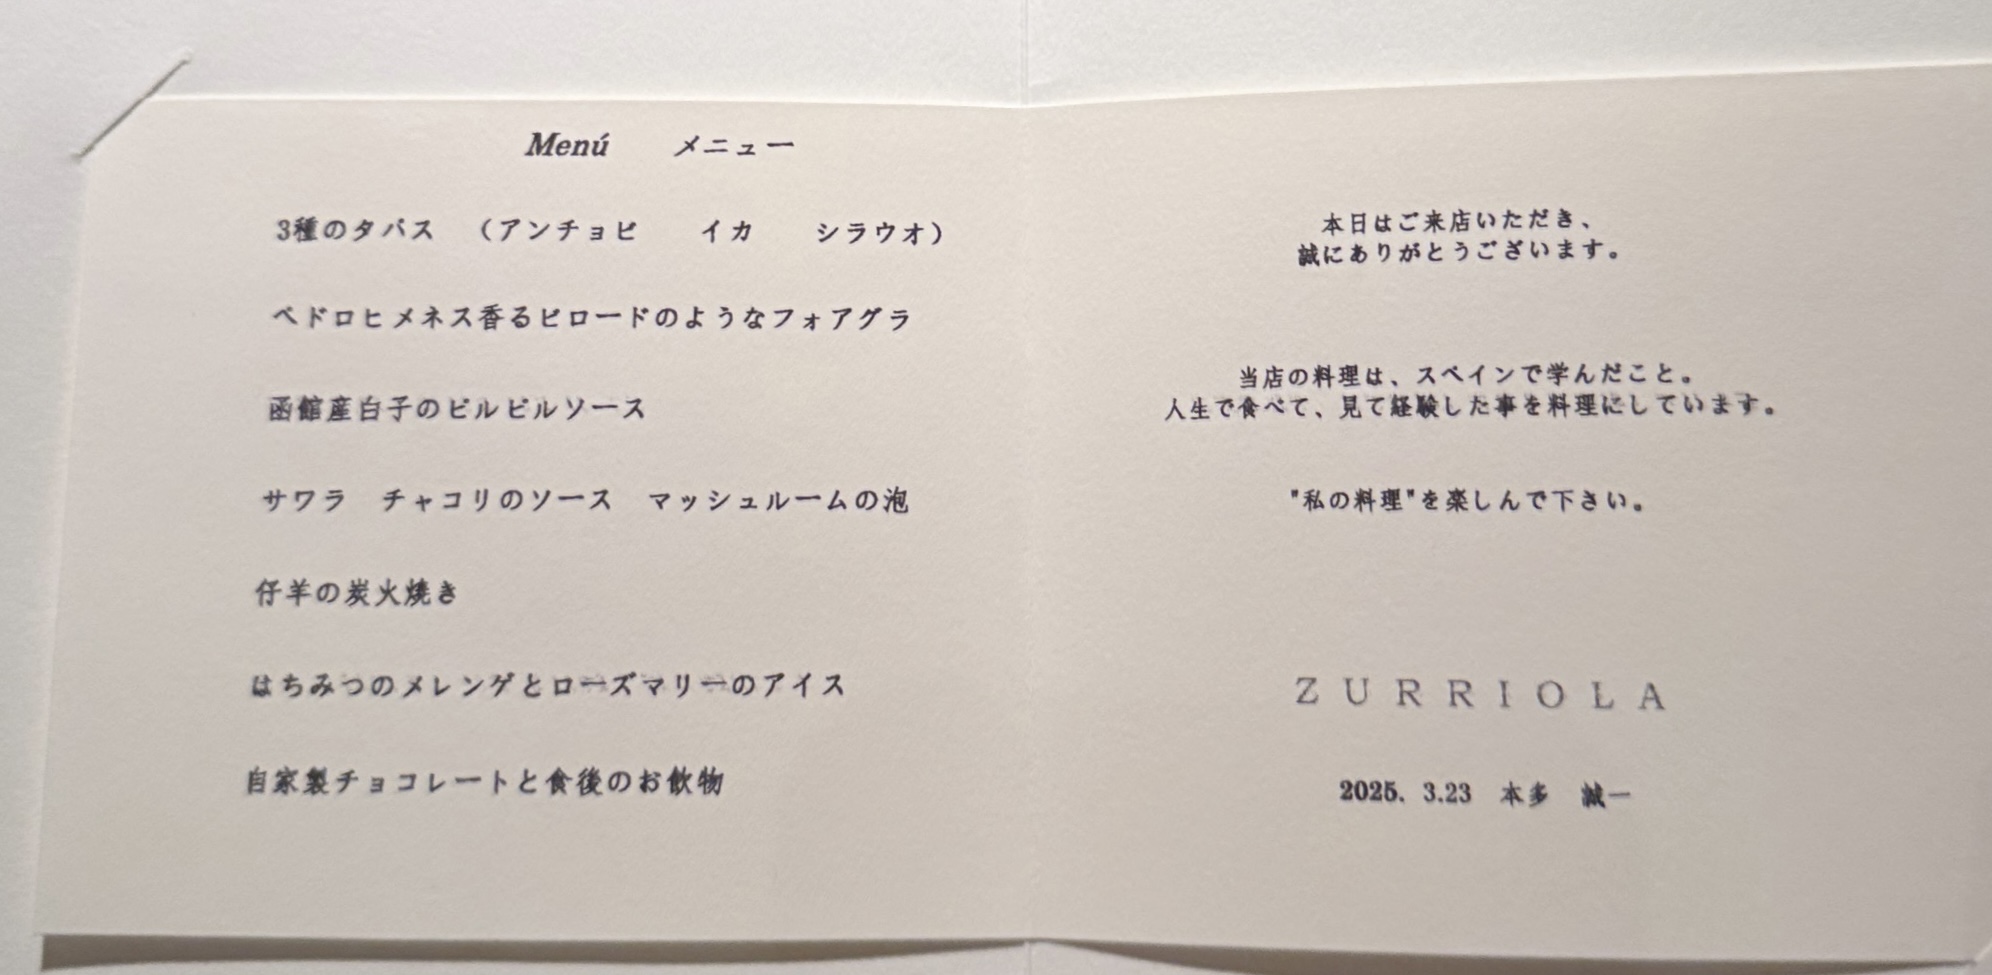 Menú　メニュー
3種のタパス　（アンチョビ　イカ　シラウオ）
ペドロヒメネス香るビロードのようなフォアグラ
函館産白子のピルピルソース
サワラ　チャコリのソース　マッシュルームの泡
仔羊の炭火焼き
はちみつのメレンゲとローズマリーのアイス
自家製チョコレートと食後のお飲物
本日はご来店いただき、
誠にありがとうございます。
当店の料理は、スペインで学んだこと。
人生で食べて、見て経験した事を料理にしています。
"私の料理"を楽しんで下さい。
ZURRIOLA
2025. 3.23　本多　誠一